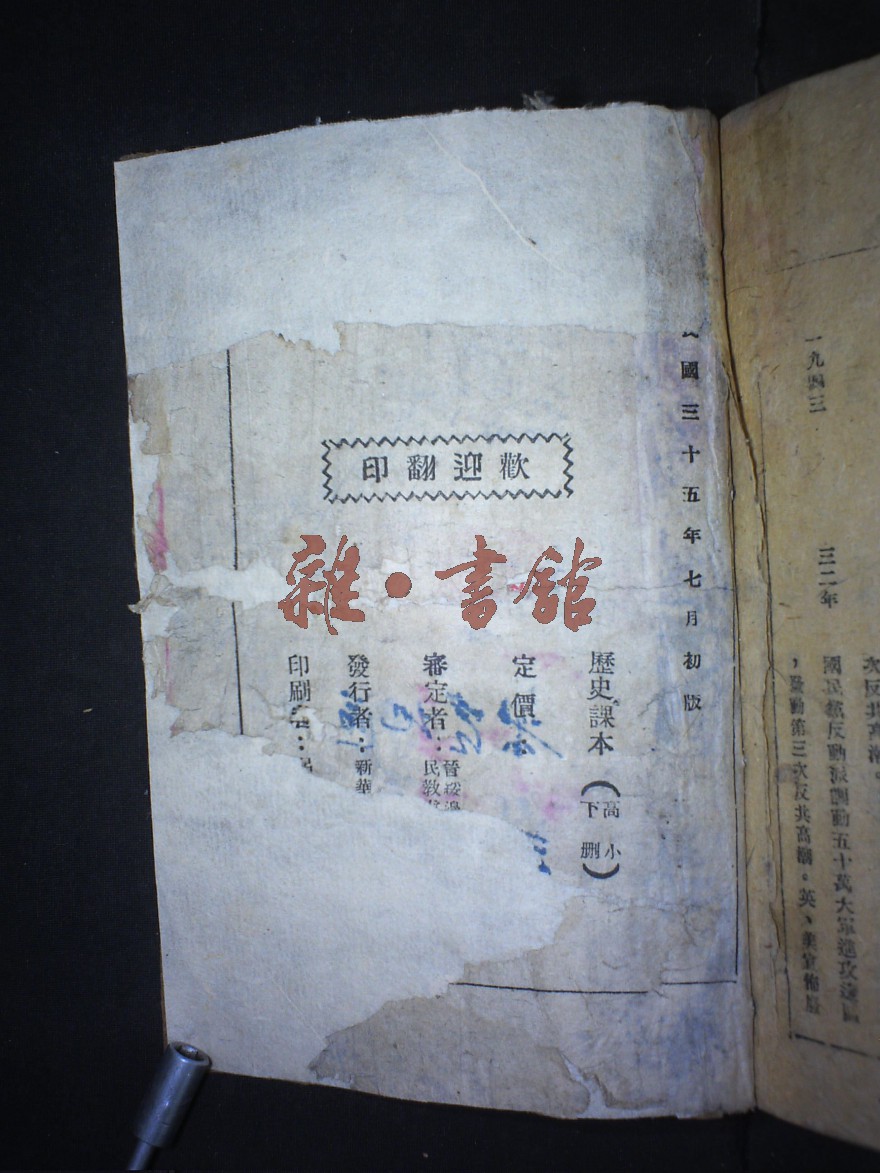 一九四三 三二年
次反共高潮。
國民黨反動派調動五十萬大軍進攻邊區
，發動第三次反共高潮。英、美宣佈廢
國三十五年七月初版
歡迎翻印
雜·書館
歷史課本（高小下册）
定價
審定者：晉綏邊
民教
發行者：新華
印刷者：